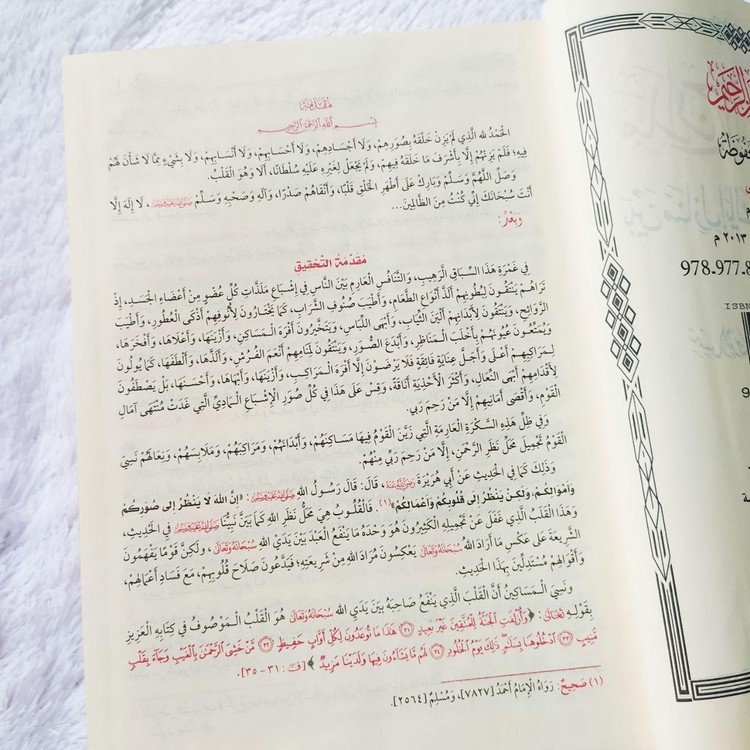 مُقَدِّمَةٌ
بِسْمِ اللهِ الرَّحْمَنِ الرَّحِيمِ
الحَمْدُ لله الَّذِي لَمْ يَزِنْ خَلْقَهُ بِصُوَرِهِمْ، وَلَا أَجْسَادِهِمْ، وَلَا أَحْسَابِهِمْ، وَلَا أَنْسَابِهِمْ، وَلَا بِشَيْءٍ مِمَّا لَا شَأْنَ لَهُمْ
فِيهِ؛ فَلَمْ يَزِنْهُمْ إِلَّا بِأَشْرَفِ مَا خَلَقَهُ فِيهِمْ، وَلَمْ يَجْعَلْ لِغَيْرِهِ عَلَيْهِ سُلْطَانًا، أَلَا وَهُوَ القَلْبُ.
وَصَلِّ اللَّهُمَّ وَسَلِّمْ وَبَارِكْ عَلَى أَطْهَرِ الخَلْقِ قَلْبًا، وَأَنْقَاهُمْ صَدْرًا، وَآلِهِ وَصَحْبِهِ وَسَلِّمْ ﷺ، لَا إِلَهَ إِلَّا
أَنْتَ سُبْحَانَكَ إِنِّي كُنْتُ مِنَ الظَّالِمِينَ...
وَبَعْدُ:
مُقَدِّمَةُ التَّحْقِيقِ
فِي غَمْرَةِ هَذَا السِّبَاقِ الرَّهِيبِ، وَالتَّنَافُسِ العَارِمِ بَيْنَ النَّاسِ فِي إِشْبَاعِ مَلَذَّاتِ كُلِّ عُضْوٍ مِنْ أَعْضَاءِ الجَسَدِ، إِذْ
تَرَاهُمْ يَنْتَقُونَ لِبُطُونِهِمْ أَلَذَّ أَنْوَاعِ الطَّعَامِ، وَأَطْيَبَ صُنُوفِ الشَّرَابِ، كَمَا يَخْتَارُونَ لِأُنُوفِهِمْ أَذْكَى العُطُورِ، وَأَطْيَبَ
الرَّوَائِحِ، وَيَنْتَقُونَ لِأَبْدَانِهِمْ أَلْيَنَ الثِّيَابِ، وَأَبْهَى اللِّبَاسِ، وَيَتَخَيَّرُونَ أَفْرَهَ الـمَسَاكِنِ، وَأَزْيَنَهَا، وَأَعْلَاهَا، وَأَفْخَرَهَا،
وَيُمَتِّعُونَ عُيُونَهُمْ بِأَخْلَبِ الـمَنَاظِرِ، وَأَبْدَعِ الصُّوَرِ، وَيَنْتَقُونَ لِمَنَامِهِمْ أَنْعَمَ الفُرُشِ، وَأَلَذَّهَا، وَأَلْطَفَهَا، كَمَا يُولُونَ
لِمَرَاكِبِهِمْ أَعْلَى وَأَجَلَّ عِنَايَةٍ فَائِقَةٍ فَلَا يَرْضَوْنَ إِلَّا أَفْرَهَ الـمَرَاكِبِ، وَأَزْيَنَهَا، وَأَبْهَاهَا، وَأَحْسَنَهَا، بَلْ يَصْطَفُونَ
لِأَقْدَامِهِمْ أَبْهَى النِّعَالِ، وَأَكْثَرَ الأَحْذِيَةِ أَنَاقَةً، وَقِسْ عَلَى هَذَا فِي كُلِّ صُوَرِ الإِشْبَاعِ الـمَادِيِّ الَّتِي غَدَتْ مُنْتَهَى آمَالِ
القَوْمِ، وَأَقْصَى أَمَانِيهِمْ إِلَّا مَنْ رَحِمَ رَبِّي.
وَفِي ظِلِّ هَذِهِ السَّكْرَةِ العَارِمَةِ الَّتِي زَيَّنَ القَوْمُ فِيهَا مَسَاكِنَهُمْ، وَأَبْدَانَهُمْ، وَمَرَاكِبَهُمْ، وَمَلَابِسَهُمْ، وَنِعَالَهُمْ نَسِيَ
القَوْمُ تَجْمِيلَ مَحَلِّ نَظَرِ الرَّحْمَنِ، إِلَّا مَنْ رَحِمَ رَبِّي مِنْهُمْ.
وَذَلِكَ كَمَا فِي الحَدِيثِ عَنْ أَبِي هُرَيْرَةَ رَضِيَ اللهُ عَنْهُ، قَالَ: قَالَ رَسُولُ اللهِ ﷺ: «إِنَّ اللهَ لَا يَنْظُرُ إِلَى صُوَرِكُمْ
وَأَمْوَالِكُمْ، وَلَكِنْ يَنْظُرُ إِلَى قُلُوبِكُمْ وَأَعْمَالِكُمْ»(١). فَالقُلُوبُ هِيَ مَحَلُّ نَظَرِ اللهِ كَمَا بَيَّنَ نَبِيُّنَا ﷺ فِي الحَدِيثِ،
وَهَذَا القَلْبُ الَّذِي غَفَلَ عَنْ تَجْمِيلِهِ الكَثِيرُونَ هُوَ وَحْدَهُ مَا يَنْفَعُ العَبْدَ بَيْنَ يَدَيِ اللهِ سُبْحَانَهُ وَتَعَالَى، وَلَكِنَّ قَوْمًا يَفْهَمُونَ
الشَّرِيعَةَ عَلَى عَكْسِ مَا أَرَادَ اللهُ سُبْحَانَهُ وَتَعَالَى يَعْكِسُونَ مُرَادَ اللهِ مِنْ شَرِيعَتِهِ؛ فَيَدَّعُونَ صَلَاحَ قُلُوبِهِمْ، مَعَ فَسَادِ أَعْمَالِهِمْ،
وَأَقْوَالِهِمْ مُسْتَدِلِّينَ بِهَذَا الحَدِيثِ.
وَنَسِيَ الـمَسَاكِينُ أَنَّ القَلْبَ الَّذِي يَنْفَعُ صَاحِبَهُ بَيْنَ يَدَيِ الله سُبْحَانَهُ وَتَعَالَى هُوَ القَلْبُ الـمَوْصُوفُ فِي كِتَابِهِ العَزِيزِ
بِقَوْلِهِ تَعَالَى: ﴿وَأُزْلِفَتِ الْجَنَّةُ لِلْمُتَّقِينَ غَيْرَ بَعِيدٍ (٣١) هَذَا مَا تُوعَدُونَ لِكُلِّ أَوَّابٍ حَفِيظٍ (٣٢) مَنْ خَشِيَ الرَّحْمَنَ بِالْغَيْبِ وَجَاءَ بِقَلْبٍ
مُنِيبٍ (٣٣) ادْخُلُوهَا بِسَلَامٍ ذَلِكَ يَوْمُ الْخُلُودِ (٣٤) لَهُمْ مَا يَشَاءُونَ فِيهَا وَلَدَيْنَا مَزِيدٌ﴾ [ق: ٣١ - ٣٥].
(١) صَحِيحٌ: رَوَاهُ الإِمَامُ أَحْمَدُ [٧٨٢٧]، وَمُسْلِمٌ [٢٥٦٤].
٢٠١٣ م
978-977-8
ISBN